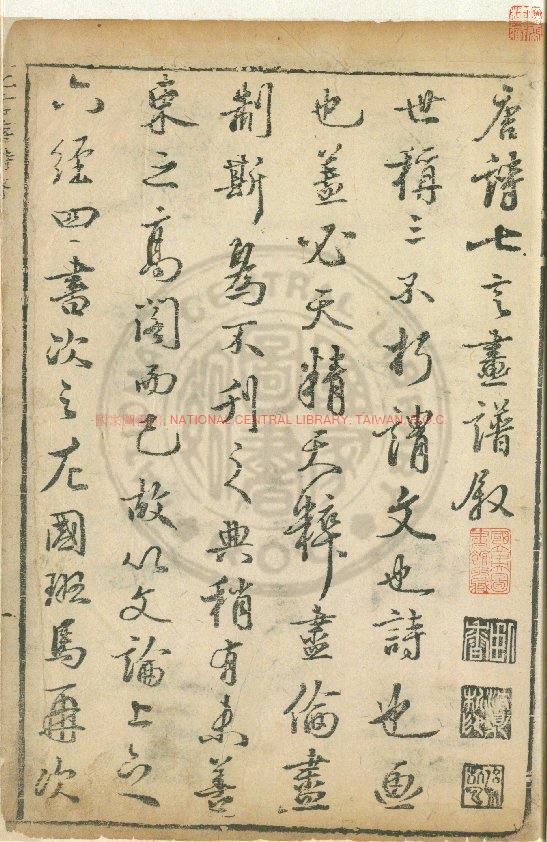 唐詩七言畫譜叙
世稱三不朽謂文也詩也画
也蓋必天精天粹盡倫盡
制斯為不刊之典稍有未善
束之高閣而已故以文論上之
六經四書次之左國班馬再次
國家圖書館, NATIONAL CENTRAL LIBRARY, TAIWAN, R.O.C.